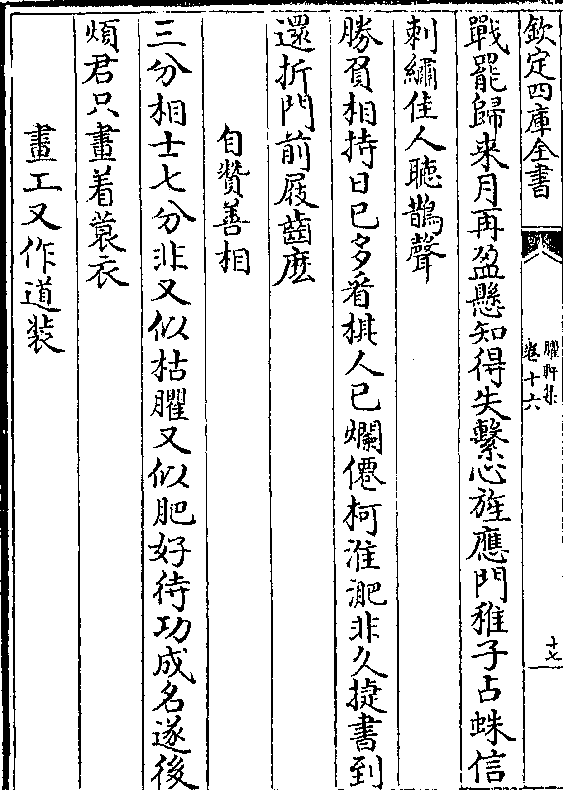 欽定四庫全書
臞軒集
卷十六
十七
戰罷歸来月再盈懸知得失繫心旌應門稚子占蛛信
刺繡佳人聴鵲聲
勝負相持日已多看棋人已爛僊柯淮淝非久捷書到
還折門前屐齒麽
自賛善相
三分相士七分非又似枯臞又似肥好待功成名遂後
煩君只畫着蓑衣
畫工又作道装